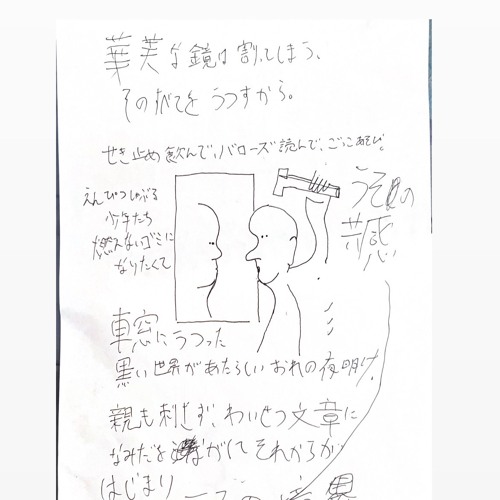 華美な鏡は割ってしまう、
そのすべてをうつすから。
せき止め飲んで、バローズ読んで、ごっこあそび。
えんぴつしゃぶる
少年たち
燃えないゴミに
なりたくて
うその
車窓にうつった
黒い世界があたらしいおれの夜明け。
親も刺せず、わいせつ文章に
なみだを ながして それからが
はじまり